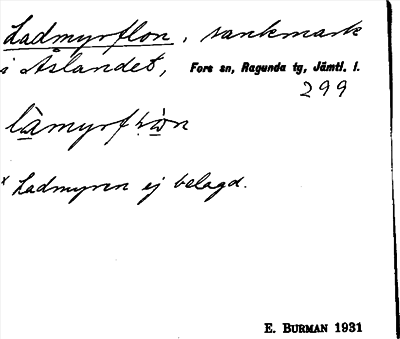 Ladmyrflon, sankmark
i Åslandet, Fors sn, Ragunda tg, Jämtl. l.
299
làmyrf
x Ladmyren ej belagd.
E. BURMAN 1931